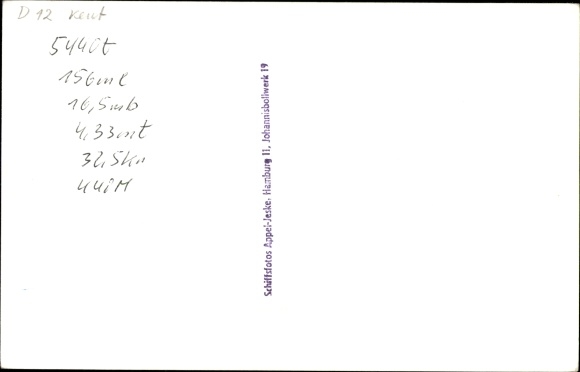 D 12 Kent
5440t
156ml
16,5mb
4,33mt
32,5Kn
44iM
Schiffsfotos Appel-Jeske, Hamburg 11, Johannisbollwerk 19